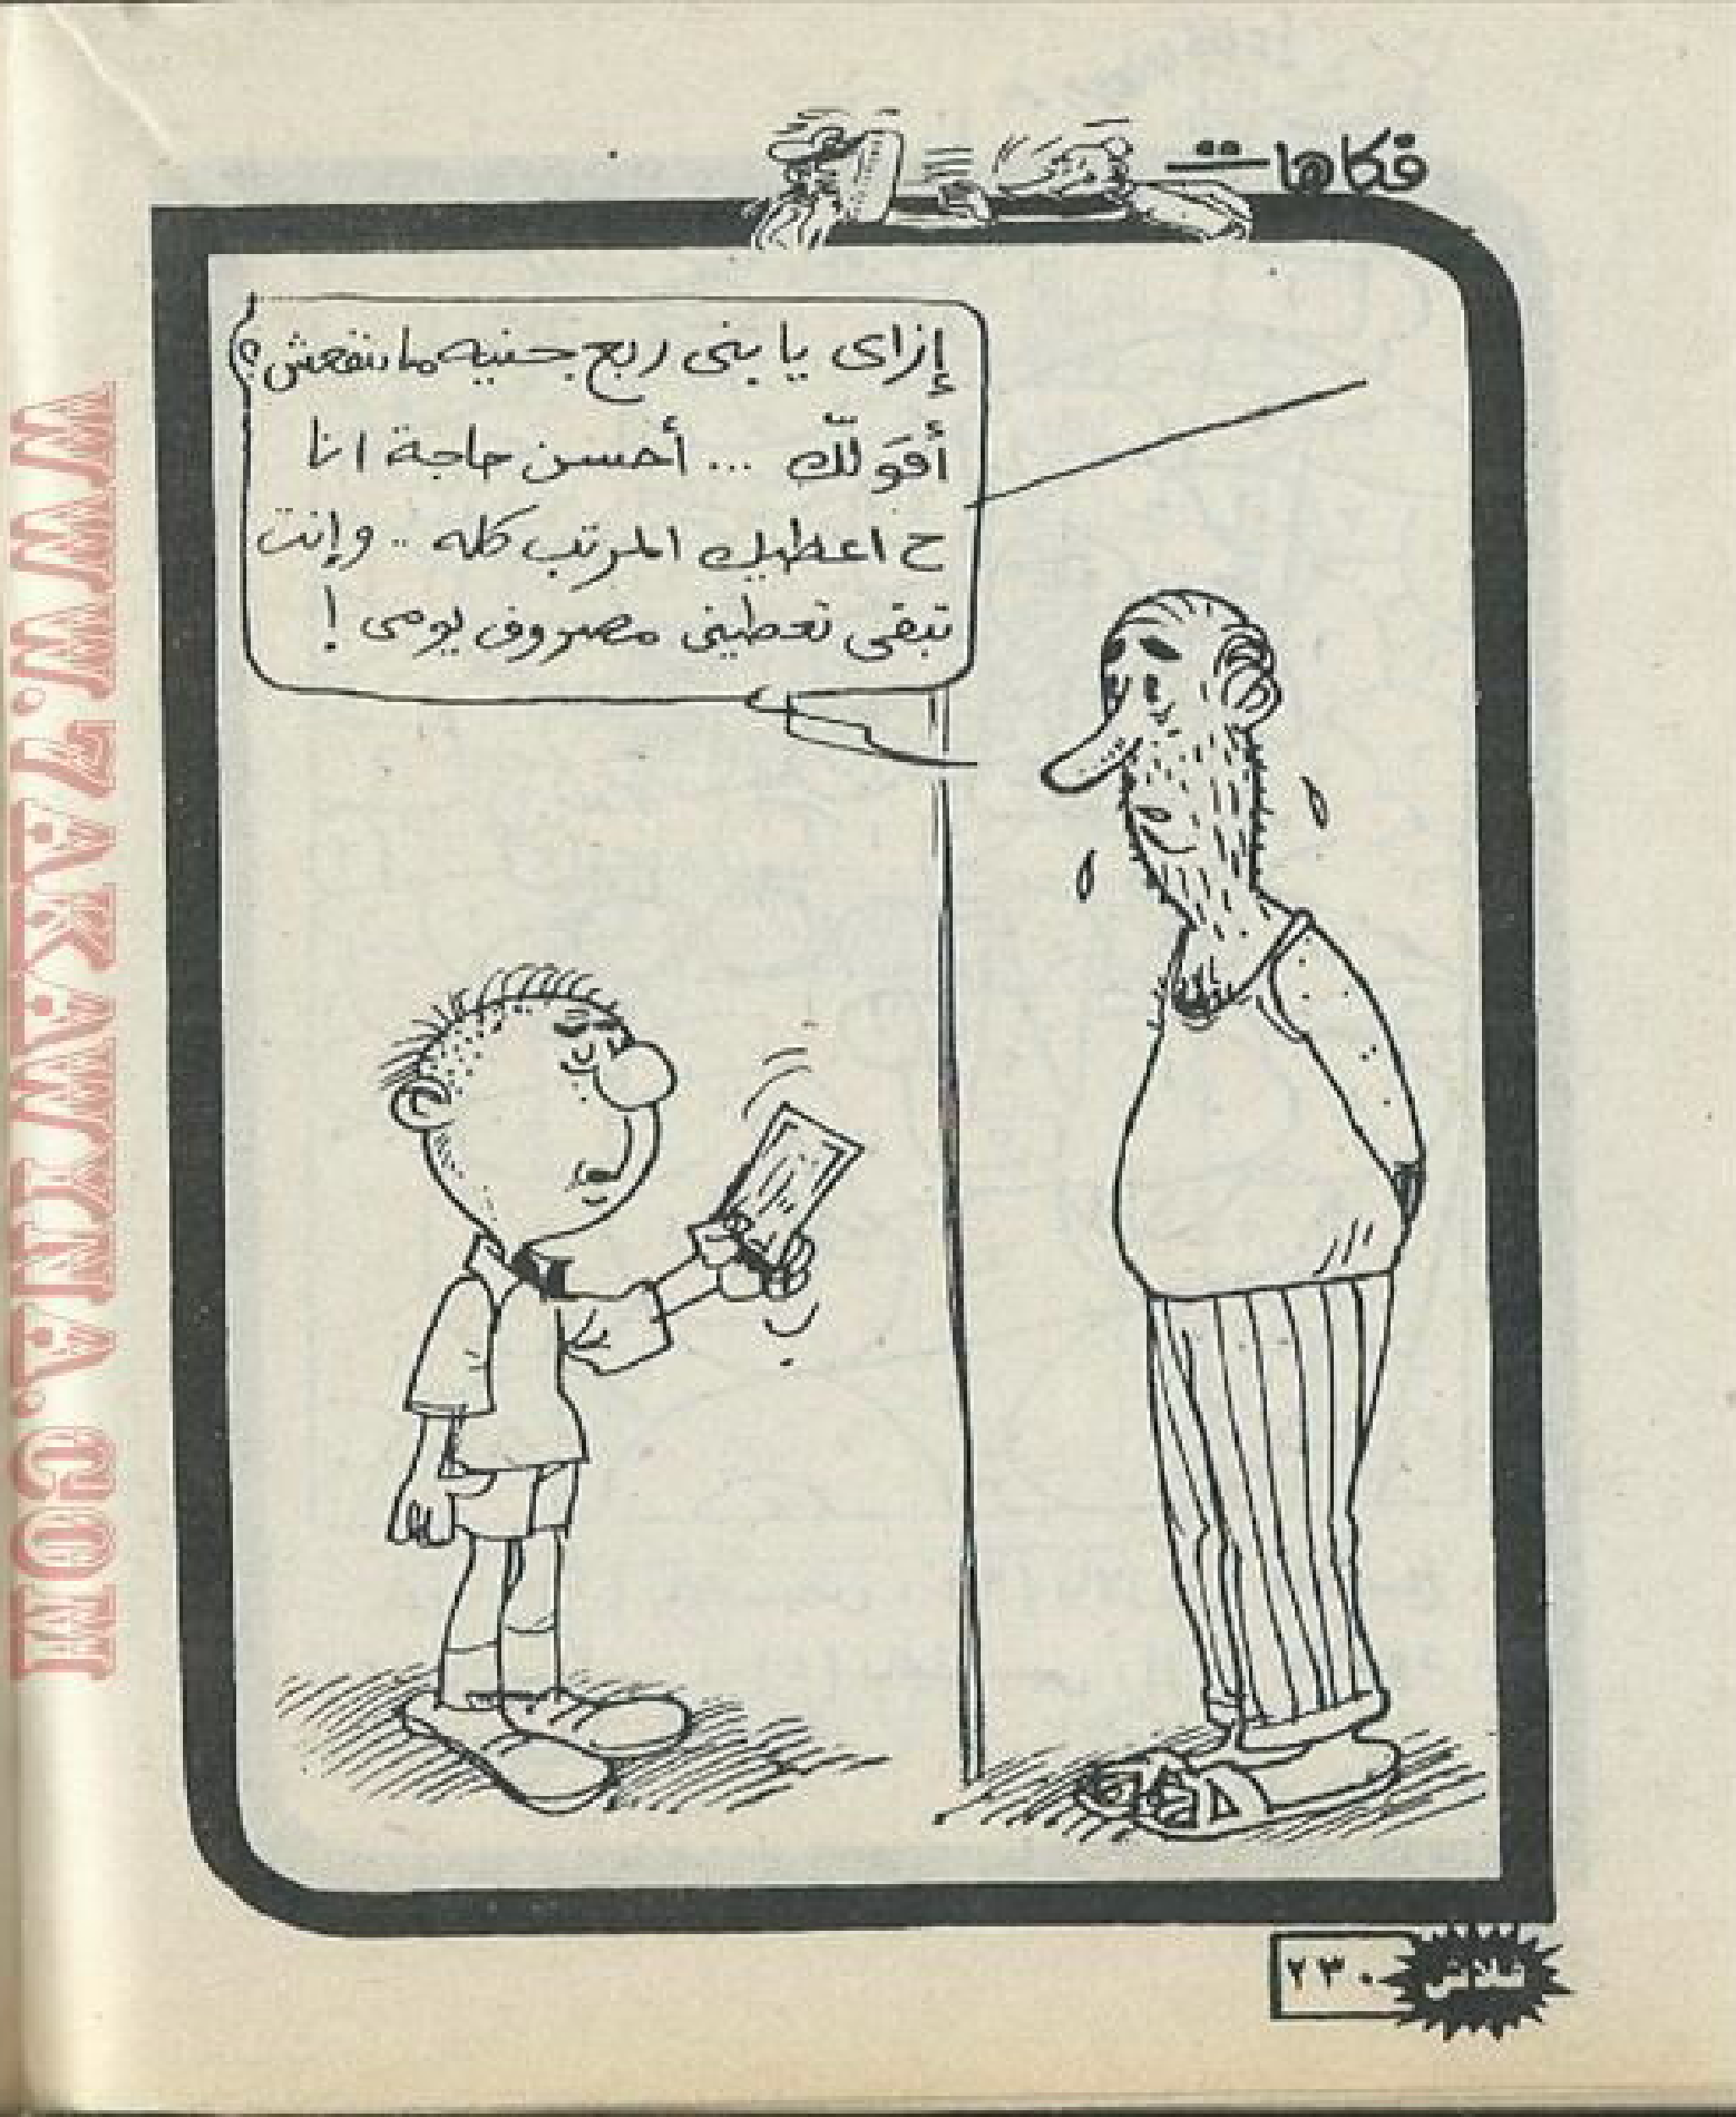 فكاهات
إزاى يا بنى ربع جنيه ماتنفعش؟
أقولّك ... أحسن حاجة انا
ح اعطيك المرتب كله .. وإنت
تبقى تعطينى مصروف يومى !
٢٣٠ فلاش
WWW.7AKAWINA.COM